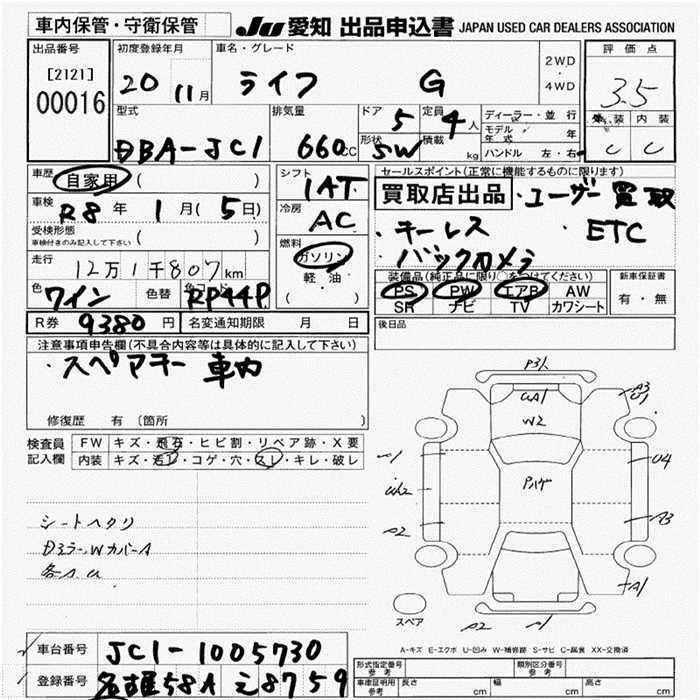 車内保管・守衛保管
JU 愛知 出品申込書 JAPAN USED CAR DEALERS ASSOCIATION
出品番号
[2121]
00016
初度登録年月
20 11月
車名・グレード
ライフ G
2WD
・
4WD
評価点
3.5
外装 内装
C C
型式
DBA-JC1
排気量
660cc
ドア 5
形状 5W
定員 4人
積載 kg
ディーラー・並行
モデル年式 年
ハンドル 左・右
車歴
自家用 ( )
車検
R8年 1月(5日)
受検形態
車検付きのみ記入して下さい ( )
走行
12万1千807km
色
ワイン
色替
色コード
RP44P
シフト
1AT
冷房
AC
燃料
ガソリン
軽油
( )
セールスポイント(正常に機能するものに限ります)
買取店出品 ・ユーザー買取
・キーレス ・ETC
・バックカメラ
装備品(純正品に限り○をつけてください)
PS PW エアB AW
SR ナビ TV カワシート
新車保証書
有・無
R券 9380円
名変通知期限 月 日
後日品
注意事項申告欄(不具合内容等は具体的に記入して下さい)
・スペアキー車内
修復歴 有(箇所 )
検査員
記入欄
FW キズ・飛石・ヒビ割・リペア跡・X要
内装 キズ・汚レ・コゲ・穴・スレ・キレ・破レ
シートヘタリ
WカバーA
P31
W2
A3
U1
U4
A3
A1
スペア
A-キズ E-エクボ U-凹み W-補修跡 S-サビ C-腐食 XX-交換済
車台番号 JC1-1005730
登録番号 名古屋58A え8759
形式指定番号
参考
類別区分番号
参考
車庫証明用
参考
長さ cm
幅 cm
高さ cm